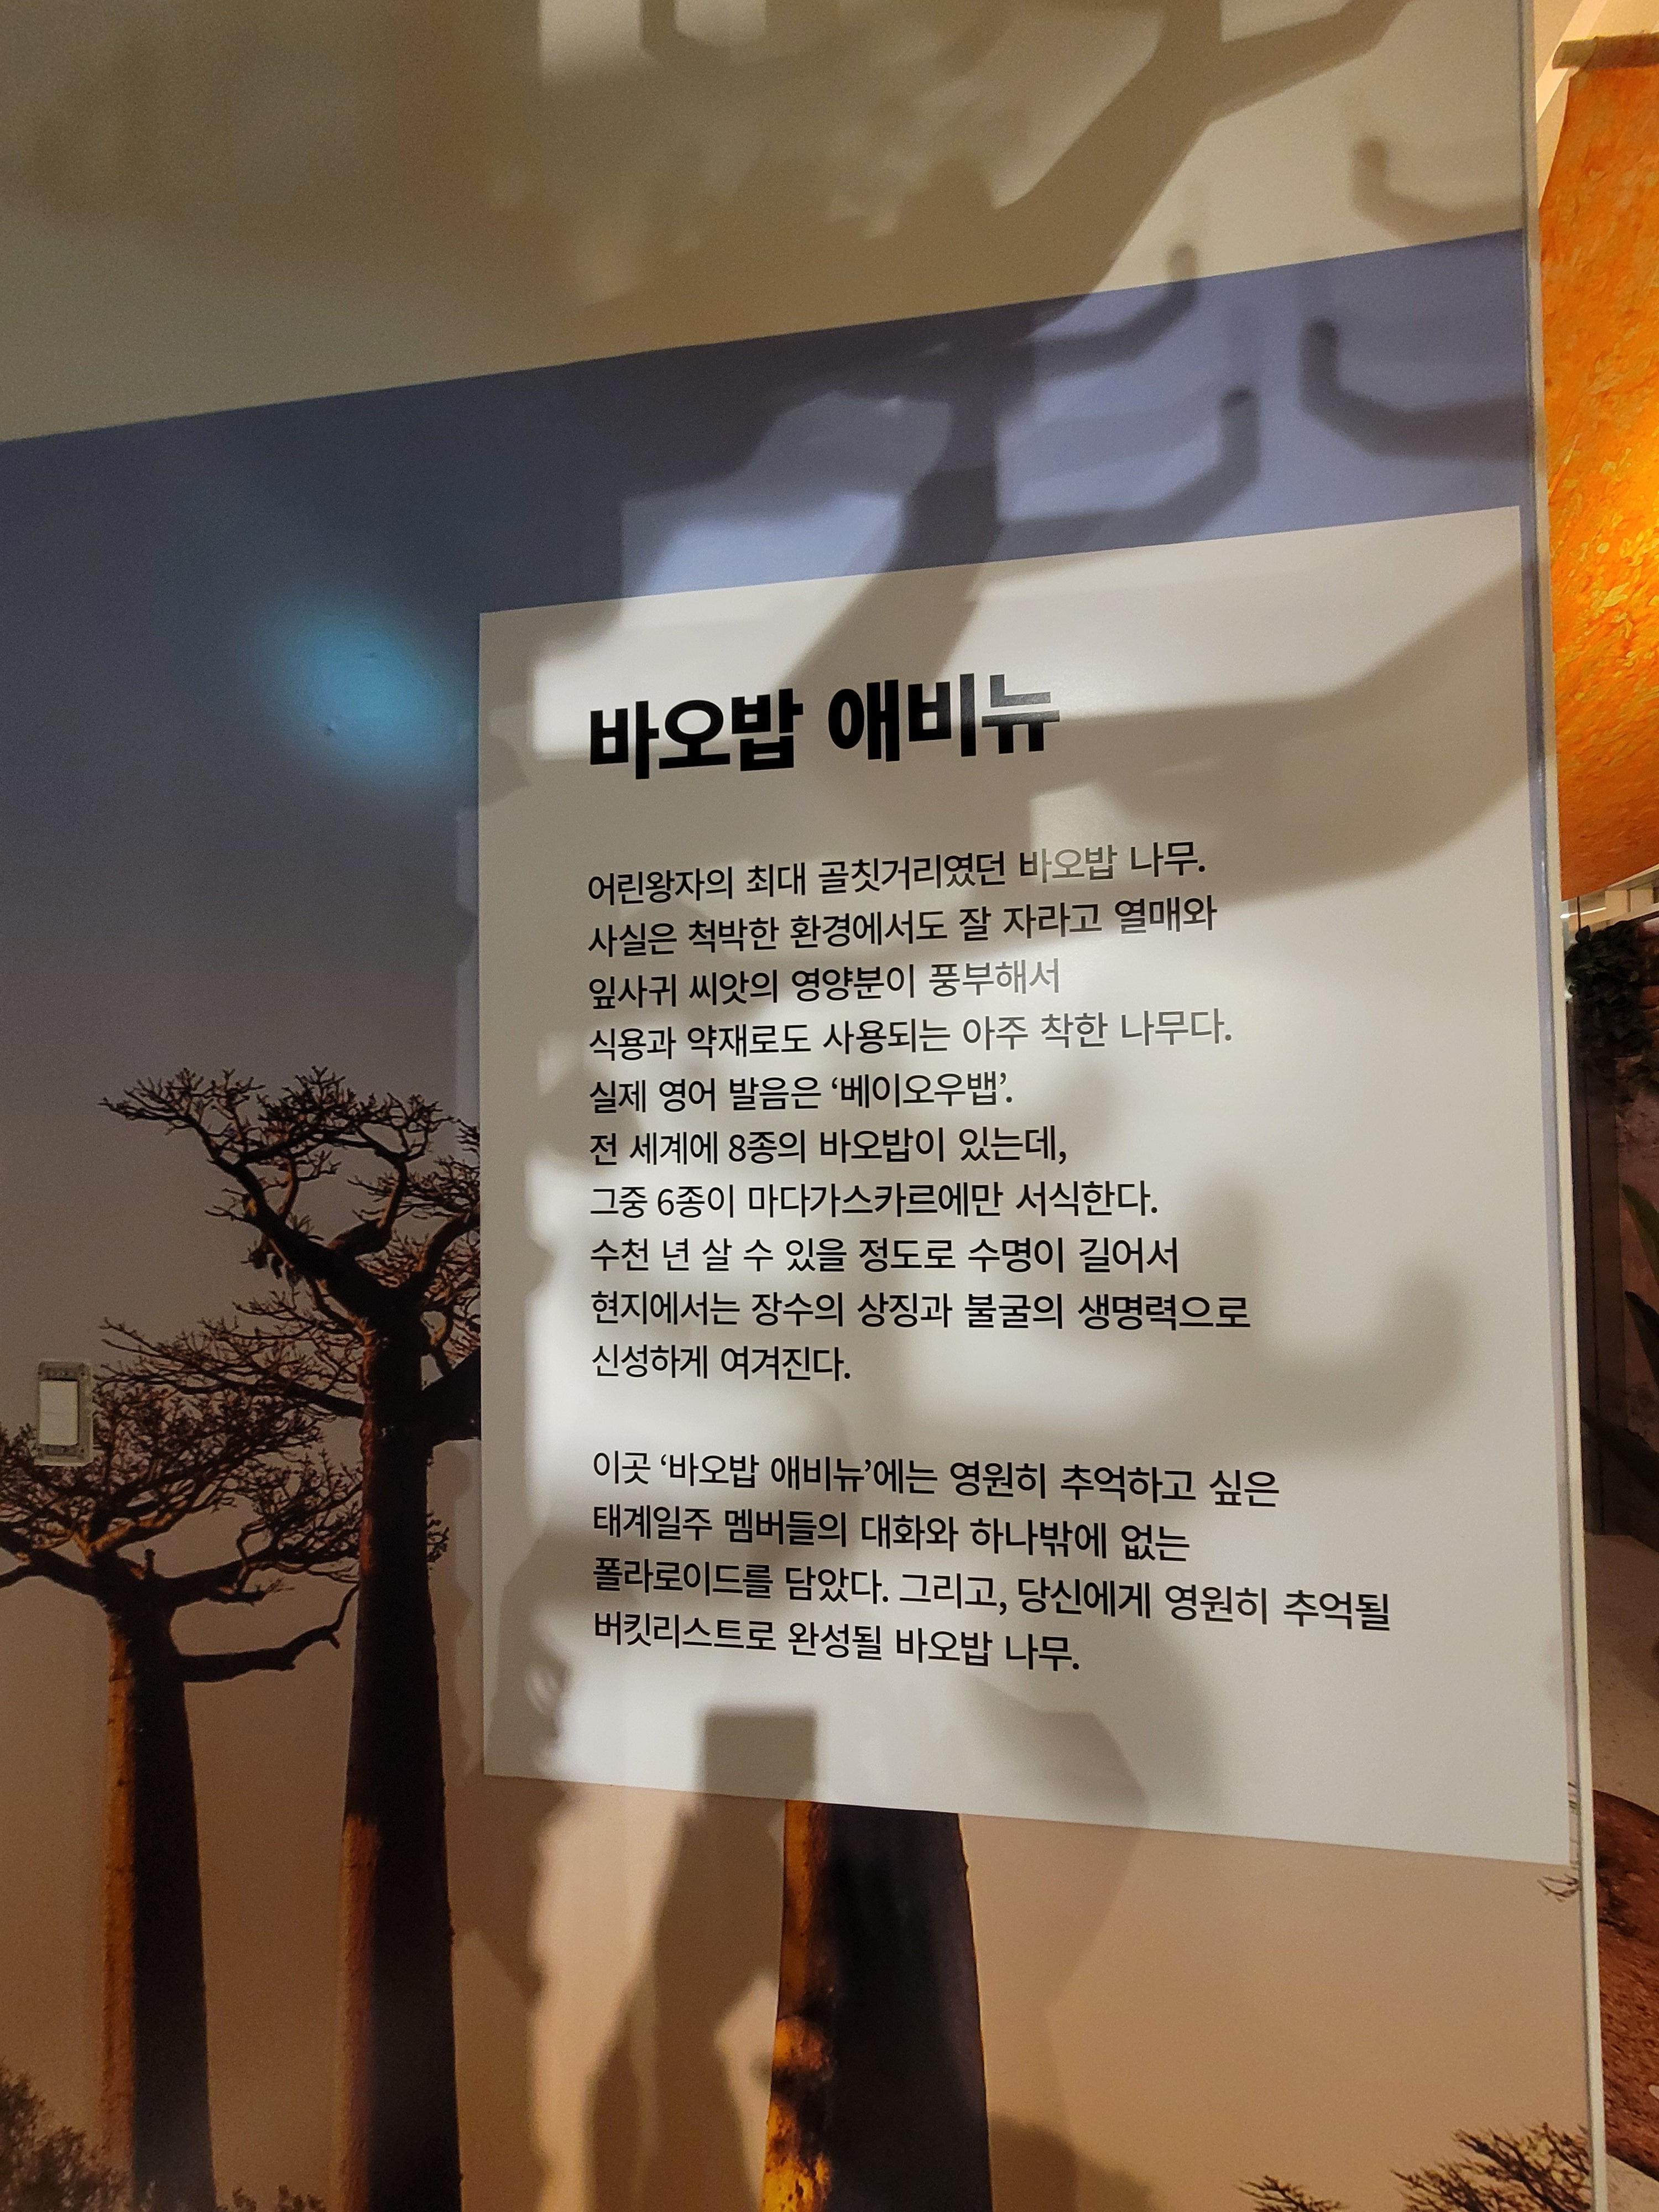 바오밥 애비뉴
어린왕자의 최대 골칫거리였던 바오밥 나무.
사실은 척박한 환경에서도 잘 자라고 열매와
잎사귀 씨앗의 영양분이 풍부해서
식용과 약재로도 사용되는 아주 착한 나무다.
실제 영어 발음은 ‘베이오우뱁’.
전 세계에 8종의 바오밥이 있는데,
그중 6종이 마다가스카르에만 서식한다.
수천 년 살 수 있을 정도로 수명이 길어서
현지에서는 장수의 상징과 불굴의 생명력으로
신성하게 여겨진다.
이곳 ‘바오밥 애비뉴’에는 영원히 추억하고 싶은
태계일주 멤버들의 대화와 하나밖에 없는
폴라로이드를 담았다. 그리고, 당신에게 영원히 추억될
버킷리스트로 완성될 바오밥 나무.